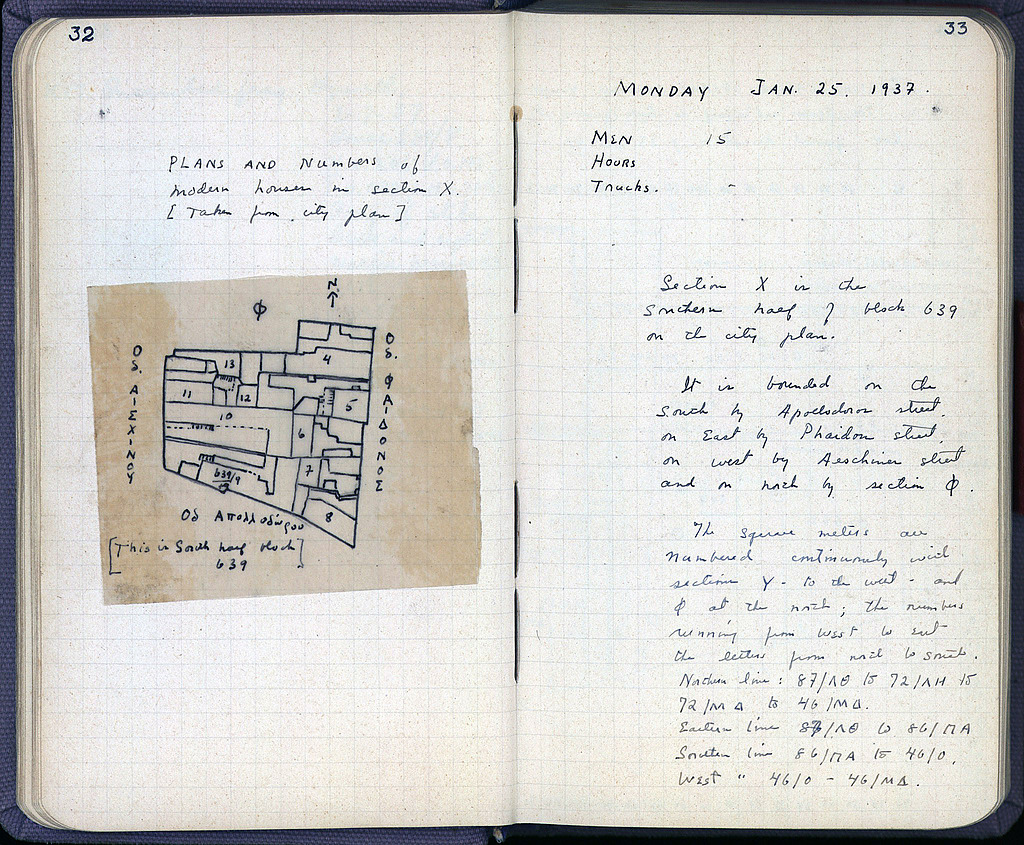 32
PLANS AND Numbers of
modern houses in section X.
[Taken from city plan]
N
Φ
Οδ. ΑΙΣΧΙΝΟΥ
Οδ. ΦΑΙΔΟΝΟΣ
13
4
11
12
5
10
6
7
639/9
8
Οδ Απολλοδώρου
[This is South half block]
639
33
MONDAY JAN. 25. 1937.
MEN 15
HOURS
Trucks. -
Section X is the
Southern half of block 639
on the city plan.
It is bounded on the
South by Apollodoros street,
on East by Phaidon street,
on west by Aeschines street
and on north by section Φ.
The square meters are
numbered continuously with
section Y - to the west - and
Φ at the north; the numbers
running from west to east
the letters from north to south.
Northern line: 87/ΛΘ to 72/ΛΗ to
72/ΜΔ to 46/ΜΔ.
Eastern line 87/ΛΘ to 86/ΠΑ
Southern line 86/ΠΑ to 46/Ο.
West " 46/Ο - 46/ΜΔ.